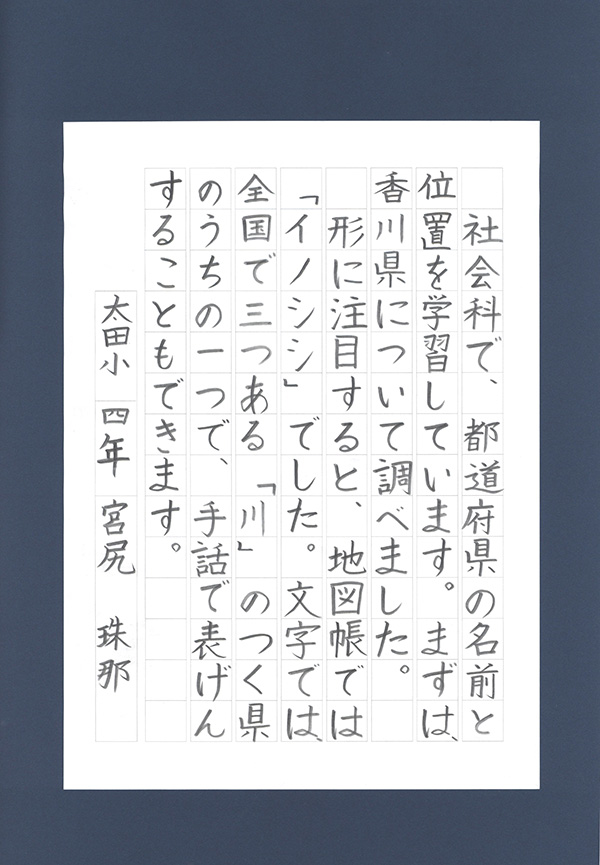 社会科で、都道府県の名前と
位置を学習しています。まずは、
香川県について調べました。
形に注目すると、地図帳では
「イノシシ」でした。文字では、
全国で三つある「川」のつく県
のうちの一つで、手話で表げん
することもできます。
太田小 四年 宮尻 珠那